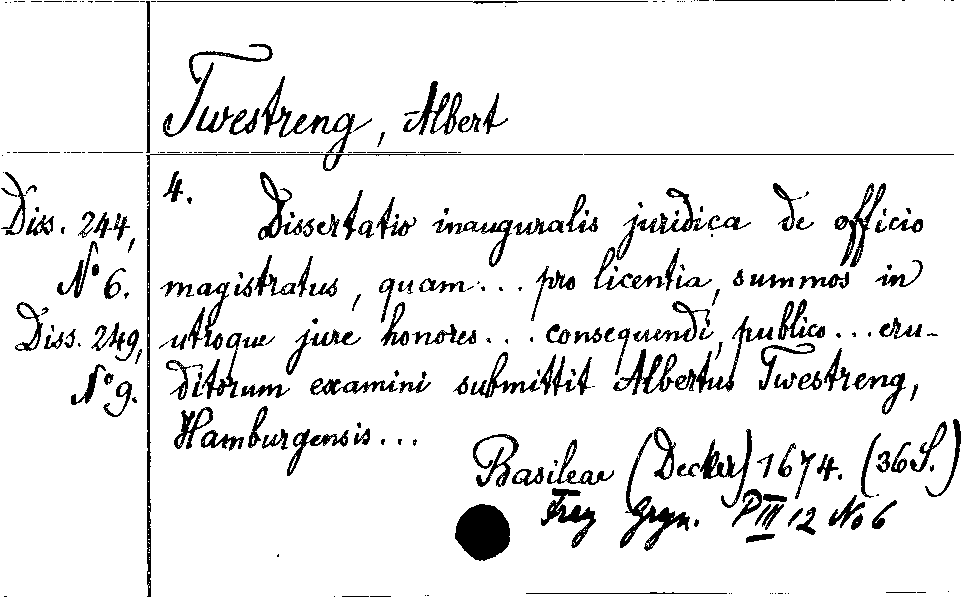 Twestreng, Albert
4.
Diss. 244,
Nº 6.
Diss. 249,
Nº 9.
Dissertatio inauguralis juridica de officio
magistratus, quam... pro licentia, summos in
utroque jure honores... consequendi, publico... eru-
ditorum examini submittit Albertus Twestreng,
Hamburgensis...
Basileae (Decker) 1674. (36 S.)
Frey Gryn. P III 12 No 6